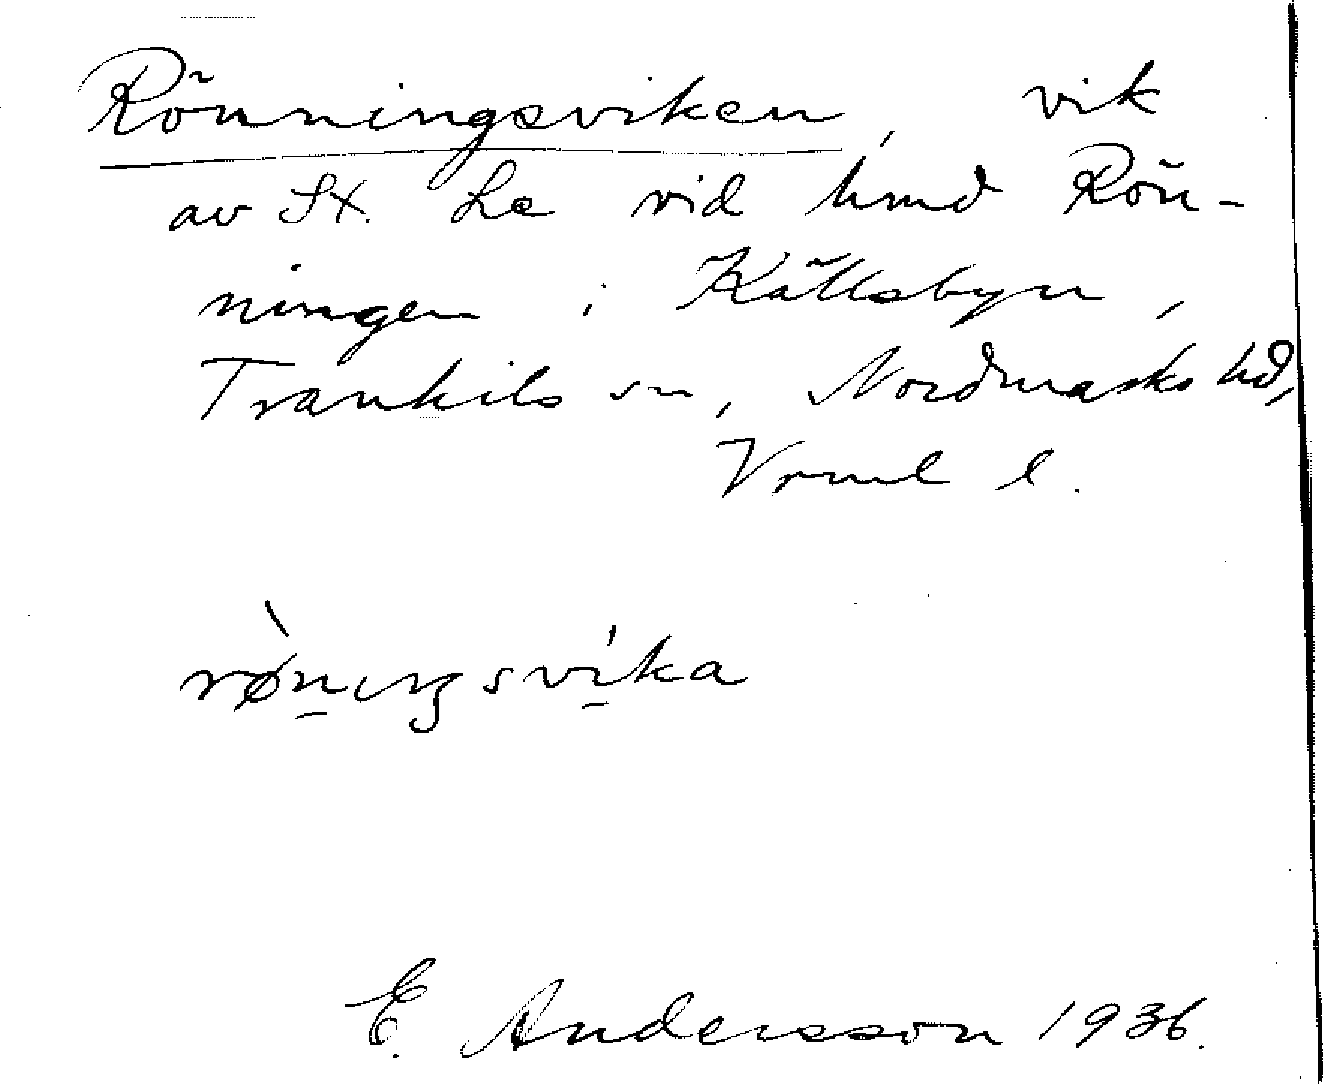 Rönningsviken, vik
av St. Le vid hmd Rön-
ningen i Källsbyn,
Trankils sn, Nordmarks hd,
Vrml l.
rø̀nıŋsvíka
E. Andersson 1936.